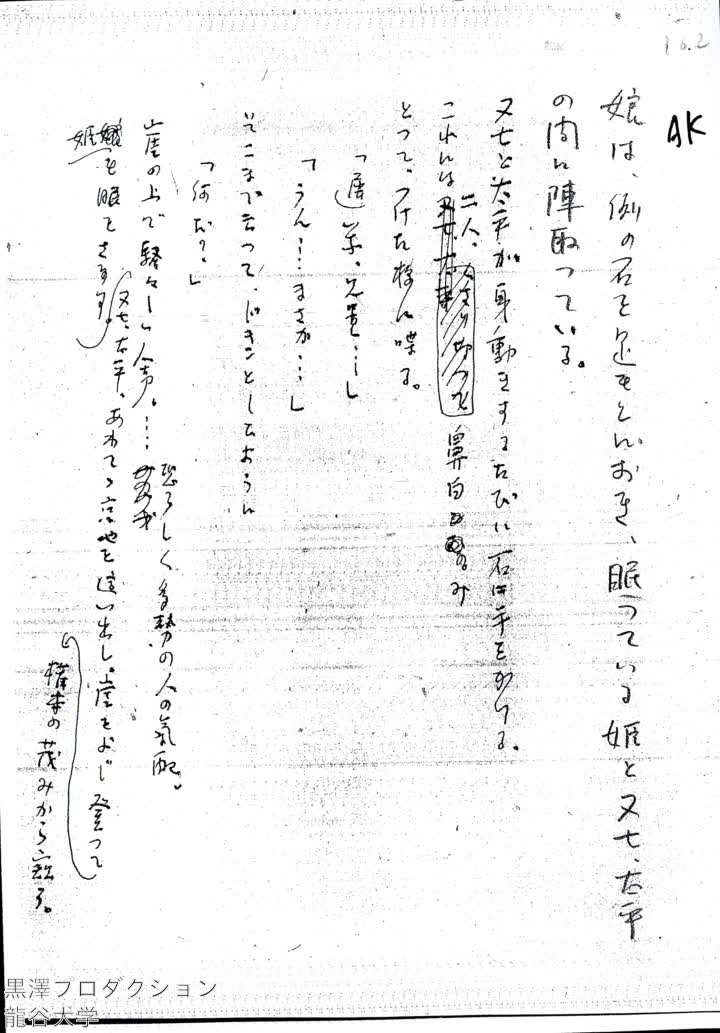 16.2
AK
娘は、例の石を足もとにおき、眠っている姫と又七、太平
の間に陣取っている。
又七と太平が身動きするたびに石に手をかける。
二人、
これには
鼻白み
とってつけた様に喋る。
「遅え、兄貴…」
「うん……まさか……」
そこまで云って、どきんとしたように
「何だ？」
崖の上で騒々しい人声。…
恐ろしく多勢の人の気配。
姫も眼をさます。
又七、太平、あわてゝ窪地を這い出し、崖をよじ登って
灌木の茂みから覗る。
黒澤プロダクション
龍谷大学